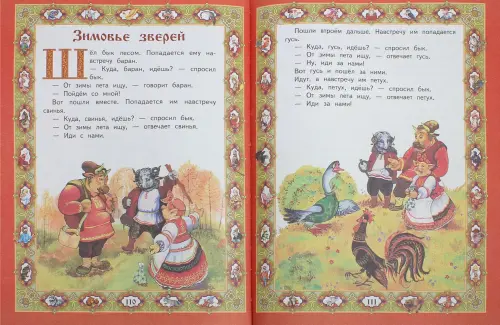 Зимовье зверей
Шёл бык лесом. Попадается ему на-
встречу баран.
— Куда, баран, идёшь? — спросил
бык.
— От зимы лета ищу, — говорит баран.
— Пойдём со мной!
Вот пошли вместе. Попадается им навстречу
свинья.
— Куда, свинья, идёшь? — спросил бык.
— От зимы лета ищу, — отвечает свинья.
— Иди с нами.
110
Пошли втроём дальше. Навстречу им попадается
гусь.
— Куда, гусь, идёшь? — спросил бык.
— От зимы лета ищу, — отвечает гусь.
— Ну, иди за нами!
Вот гусь и пошёл за ними.
Идут, а навстречу им петух.
— Куда, петух, идёшь? — спросил бык.
— От зимы лета ищу, — отвечает петух.
— Иди за нами!
111